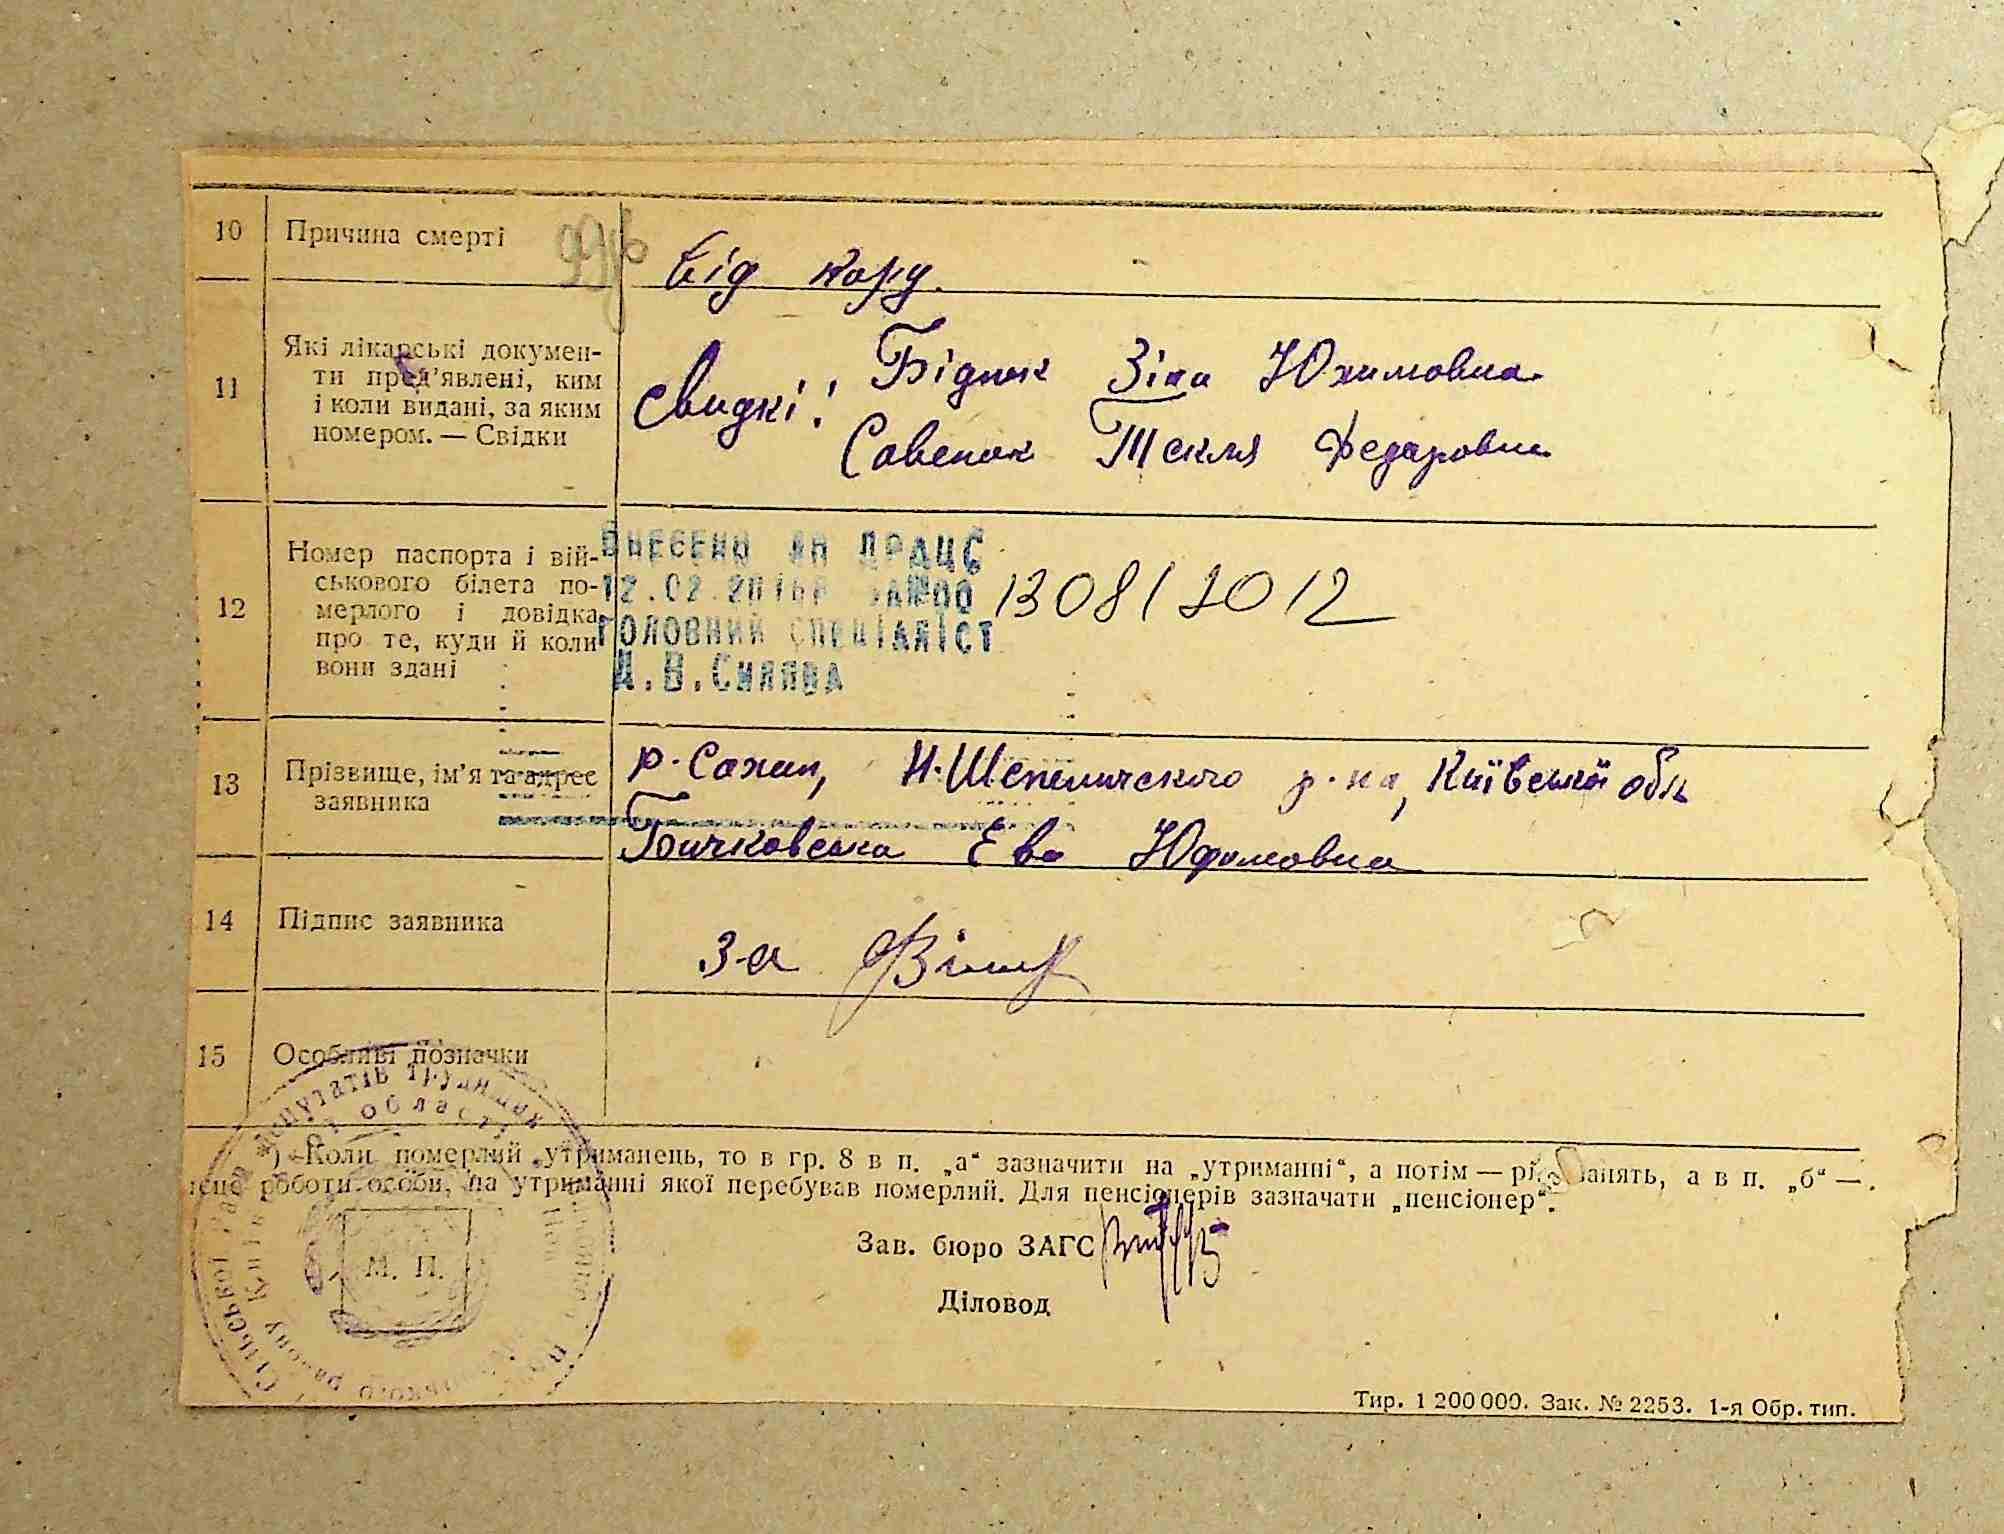 10 Причина смерті
Від кору.
11 Які лікарські докумен-
ти пред'явлені, ким
і коли видані, за яким
номером. — Свідки
Свидкі: Бідник Зіна Юхимовна
Савенок Текля Федаровна
12 Номер паспорта і вій-
ськового білета по-
мерлого і довідка
про те, куди й коли
вони здані
ВНЕСЕНО ДРАЦС
12.02.
ГОЛОВНИЙ СПЕЦІАЛІСТ
1308/2012
13 Прізвище, ім'я та адрес
заявника
Н-Шепелического р-на, Київської обл
Бичковська Ева Юфимовна
14 Підпис заявника
За
15 Особливі позначки
) Коли померлий утриманець, то в гр. 8 в п. „а“ зазначити на „утриманні“, а потім — рі занять, а в п. „б“ —
роботи особи, на утриманні якої перебував померлий. Для пенсіонерів зазначати „пенсіонер“.
Зав. бюро ЗАГС
М. П.
Діловод
депутатів трудящих
області
Сільської Ради
району
Тир. 1 200 000. Зак. № 2253. 1-я Обр. тип.